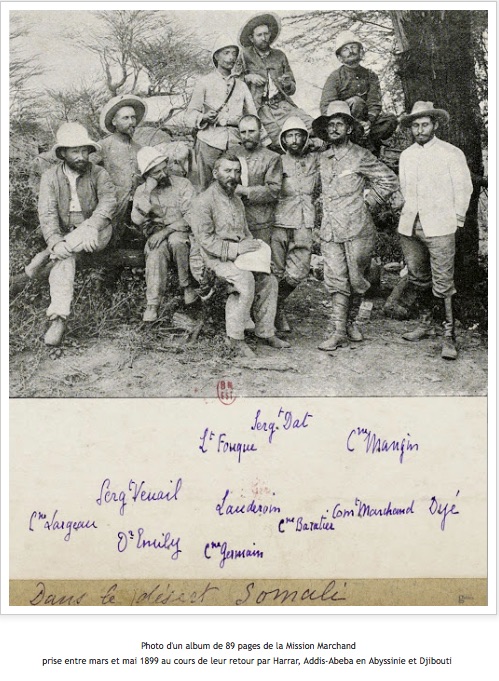 Serg.t Dat
L.t Fouque
C.ne Mangin
Serg.t Venail
Landeroin
Com.t Marchand
Dyé
C.ne Largeau
C.ne Baratier
D.r Emily
C.ne Germain
Dans le désert Somali
Photo d'un album de 89 pages de la Mission Marchand
prise entre mars et mai 1899 au cours de leur retour par Harrar, Addis-Abeba en Abyssinie et Djibouti